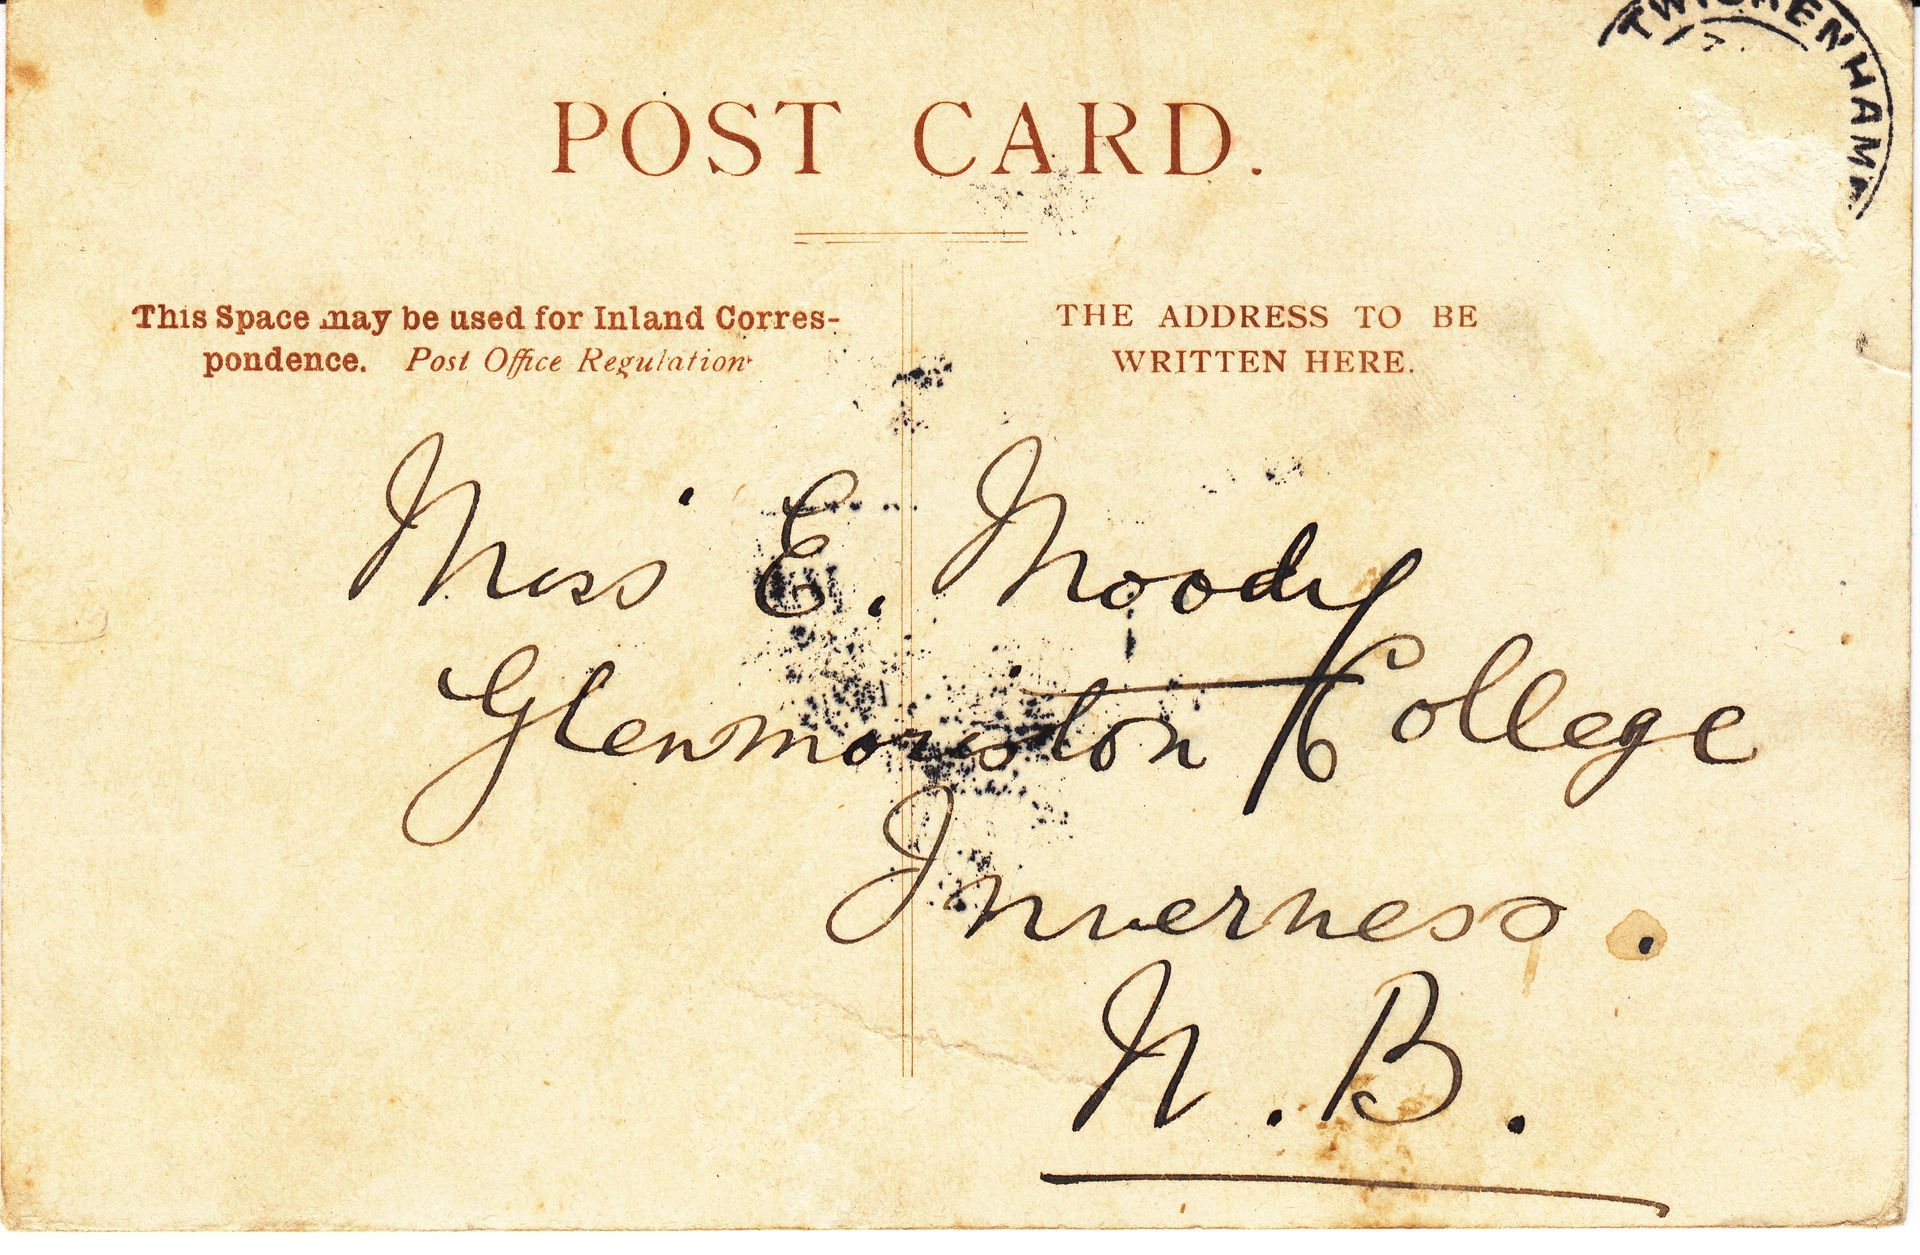 TWICKENHAM
POST CARD.
This Space may be used for Inland Corres-
pondence. Post Office Regulation
THE ADDRESS TO BE
WRITTEN HERE.
Miss E. Moody
Glenmoriston College
Inverness.
N.B.